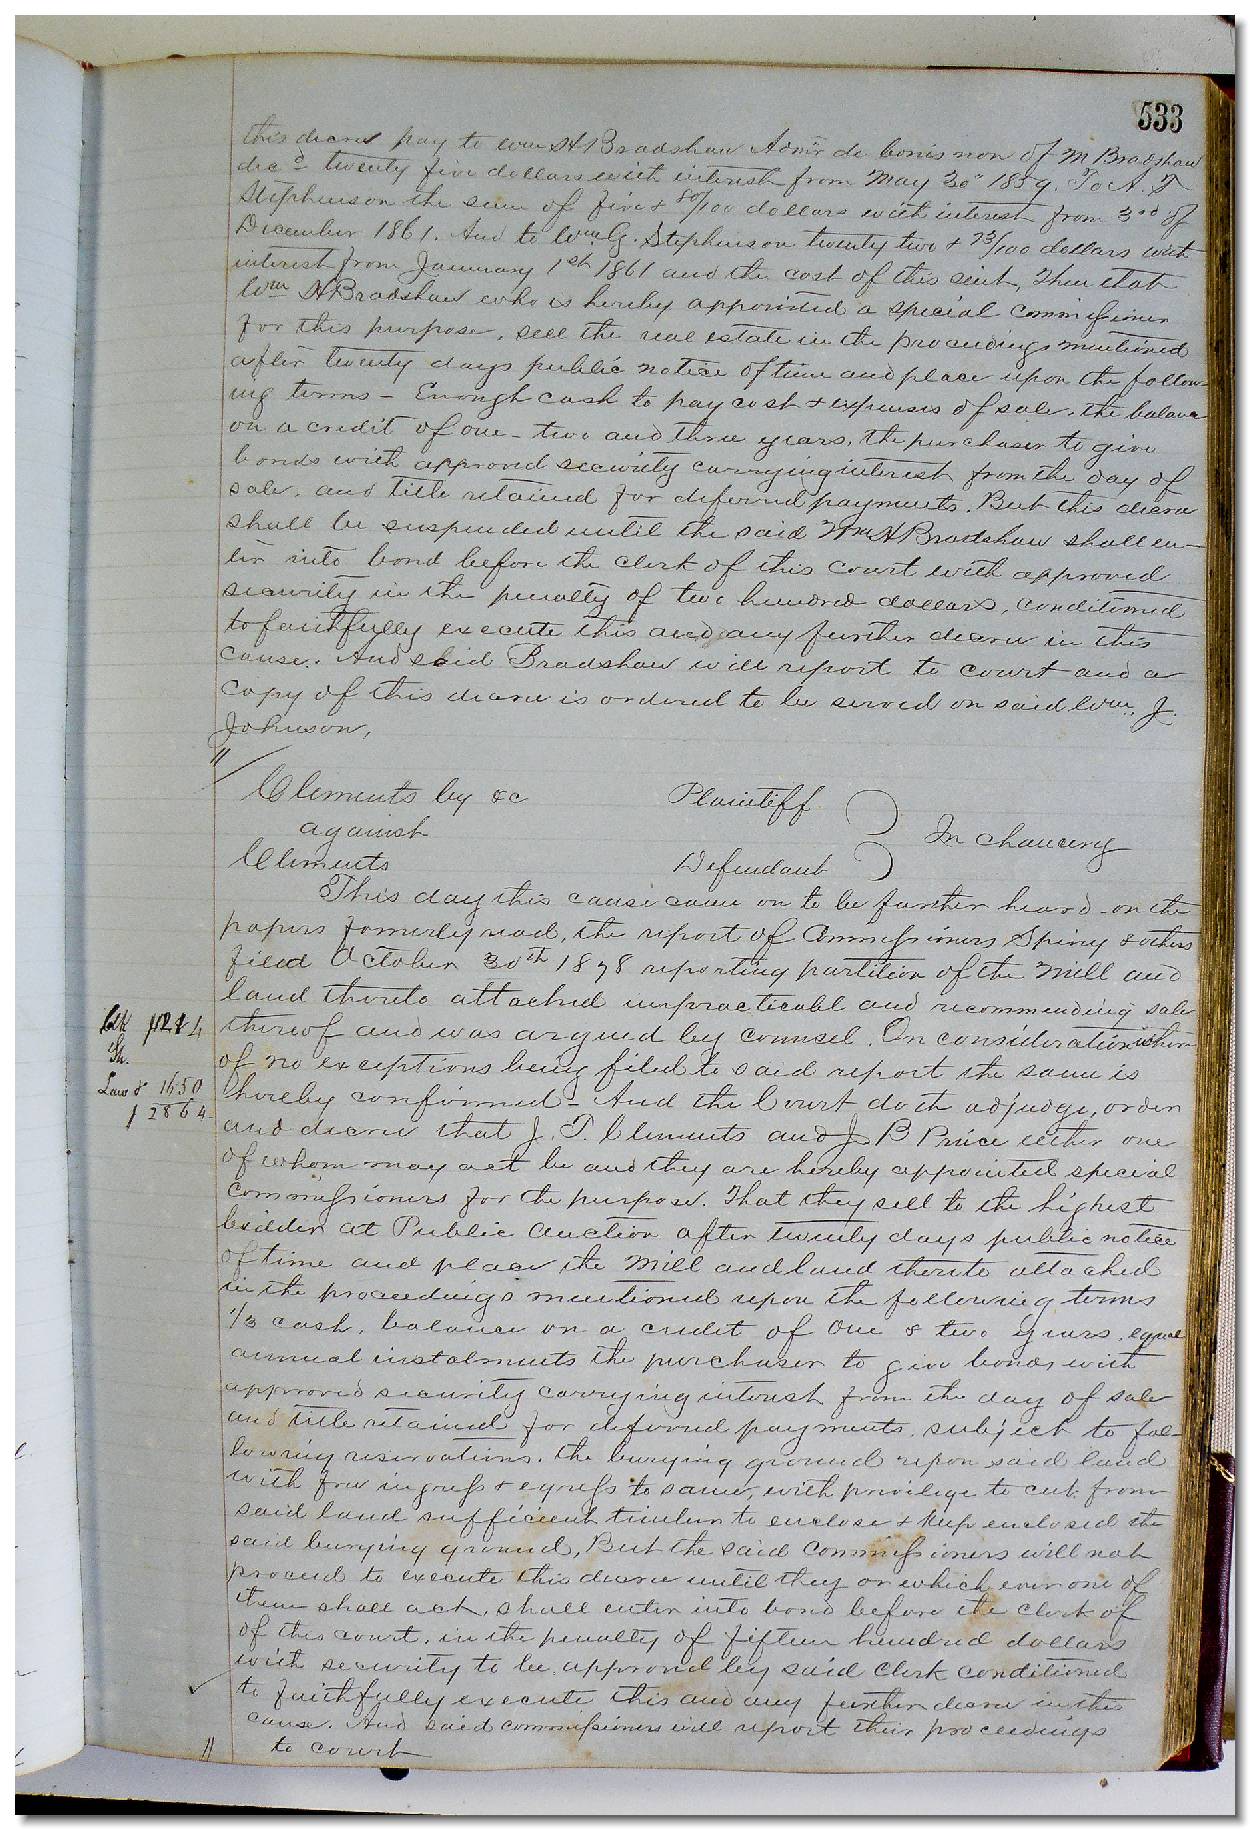 533
this decree pay to Wm H Bradshaw Admr de bonis non of M Bradshaw
decd twenty five dollars with interest from May 30th 1859. To A. T
Stephenson the sum of five & 80/100 dollars with interest from 3rd of
December 1861. And to Wm G. Stephenson twenty two & 73/100 dollars with
interest from January 1st 1861 and the cost of this suit, Then that
Wm H Bradshaw who is hereby appointed a special Commissioner
for this purpose, sell the real estate in the proceedings mentioned
after twenty days public notice of time and place upon the follow-
ing terms – Enough cash to pay cost & expenses of sale, the balance
on a credit of one – two and three years, the purchaser to give
bonds with approved security carrying interest from the day of
sale, and title retained for deferred payments. But this decree
shall be suspended until the said Wm H Bradshaw shall en-
ter into bond before the clerk of this court with approved
security in the penalty of two hundred dollars, conditioned
to faithfully execute this and any further decree in this
cause. And said Bradshaw will report to court and a
copy of this decree is ordered to be served on said Wm J.
Johnson,
Clements by &c Plaintiff
against In chancery
Clements Defendant
This day this cause came on to be further heard on the
papers formerly read, the report of Commissioners Spiny & others
filed October 30th 1878 reporting partition of the Mill and
land thereto attached unpracticable and recommending sale
Clk 1214
thereof and was argued by counsel. On consideration whereof
Sh.
of no exceptions being filed to said report the same is
Law & 1650
hereby confirmed – And the Court doth adjudge, order
12864
and decree that J. T. Clements and J B Price either one
of whom may act be and they are hereby appointed special
commissioners for the purpose. That they sell to the highest
bidder at Public Auction after twenty days public notice
of time and place, the Mill and land thereto attached
in the proceedings mentioned upon the following terms
1/3 cash, balance on a credit of One & two years, equal
annual instalments the purchaser to give bonds with
approved security carrying interest from the day of sale
and title retained for deferred payments, subject to fol-
lowing reservations. the burying ground upon said land
with free ingress & egress to same, with privilege to cut from
said land sufficient timber to enclose & keep enclosed the
said burying ground, But the said Commissioners will not
proceed to execute this decree until they or which ever one of
them shall act, shall enter into bond before the Clerk of
of this court, in the penalty of fifteen hundred dollars
with security to be approved by said Clerk conditioned
to faithfully execute this and any further decree in this
cause. And said commissioners will report their proceedings
to court